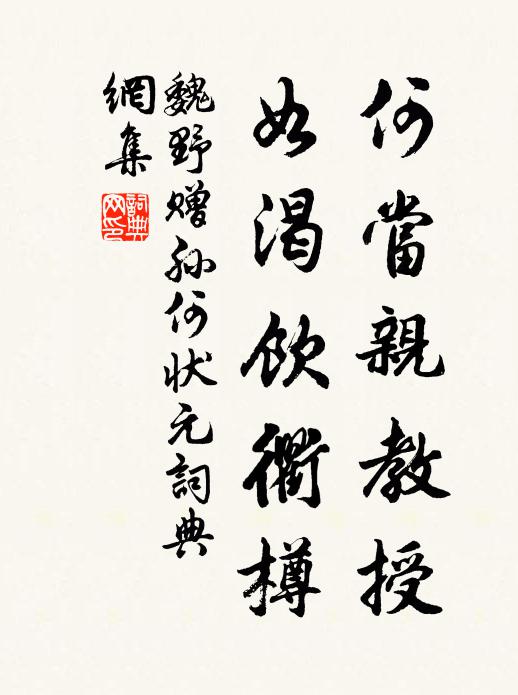 何當親教授
如渴飲衢樽
魏野赠孙何状元詞典
網集
詞典
网印